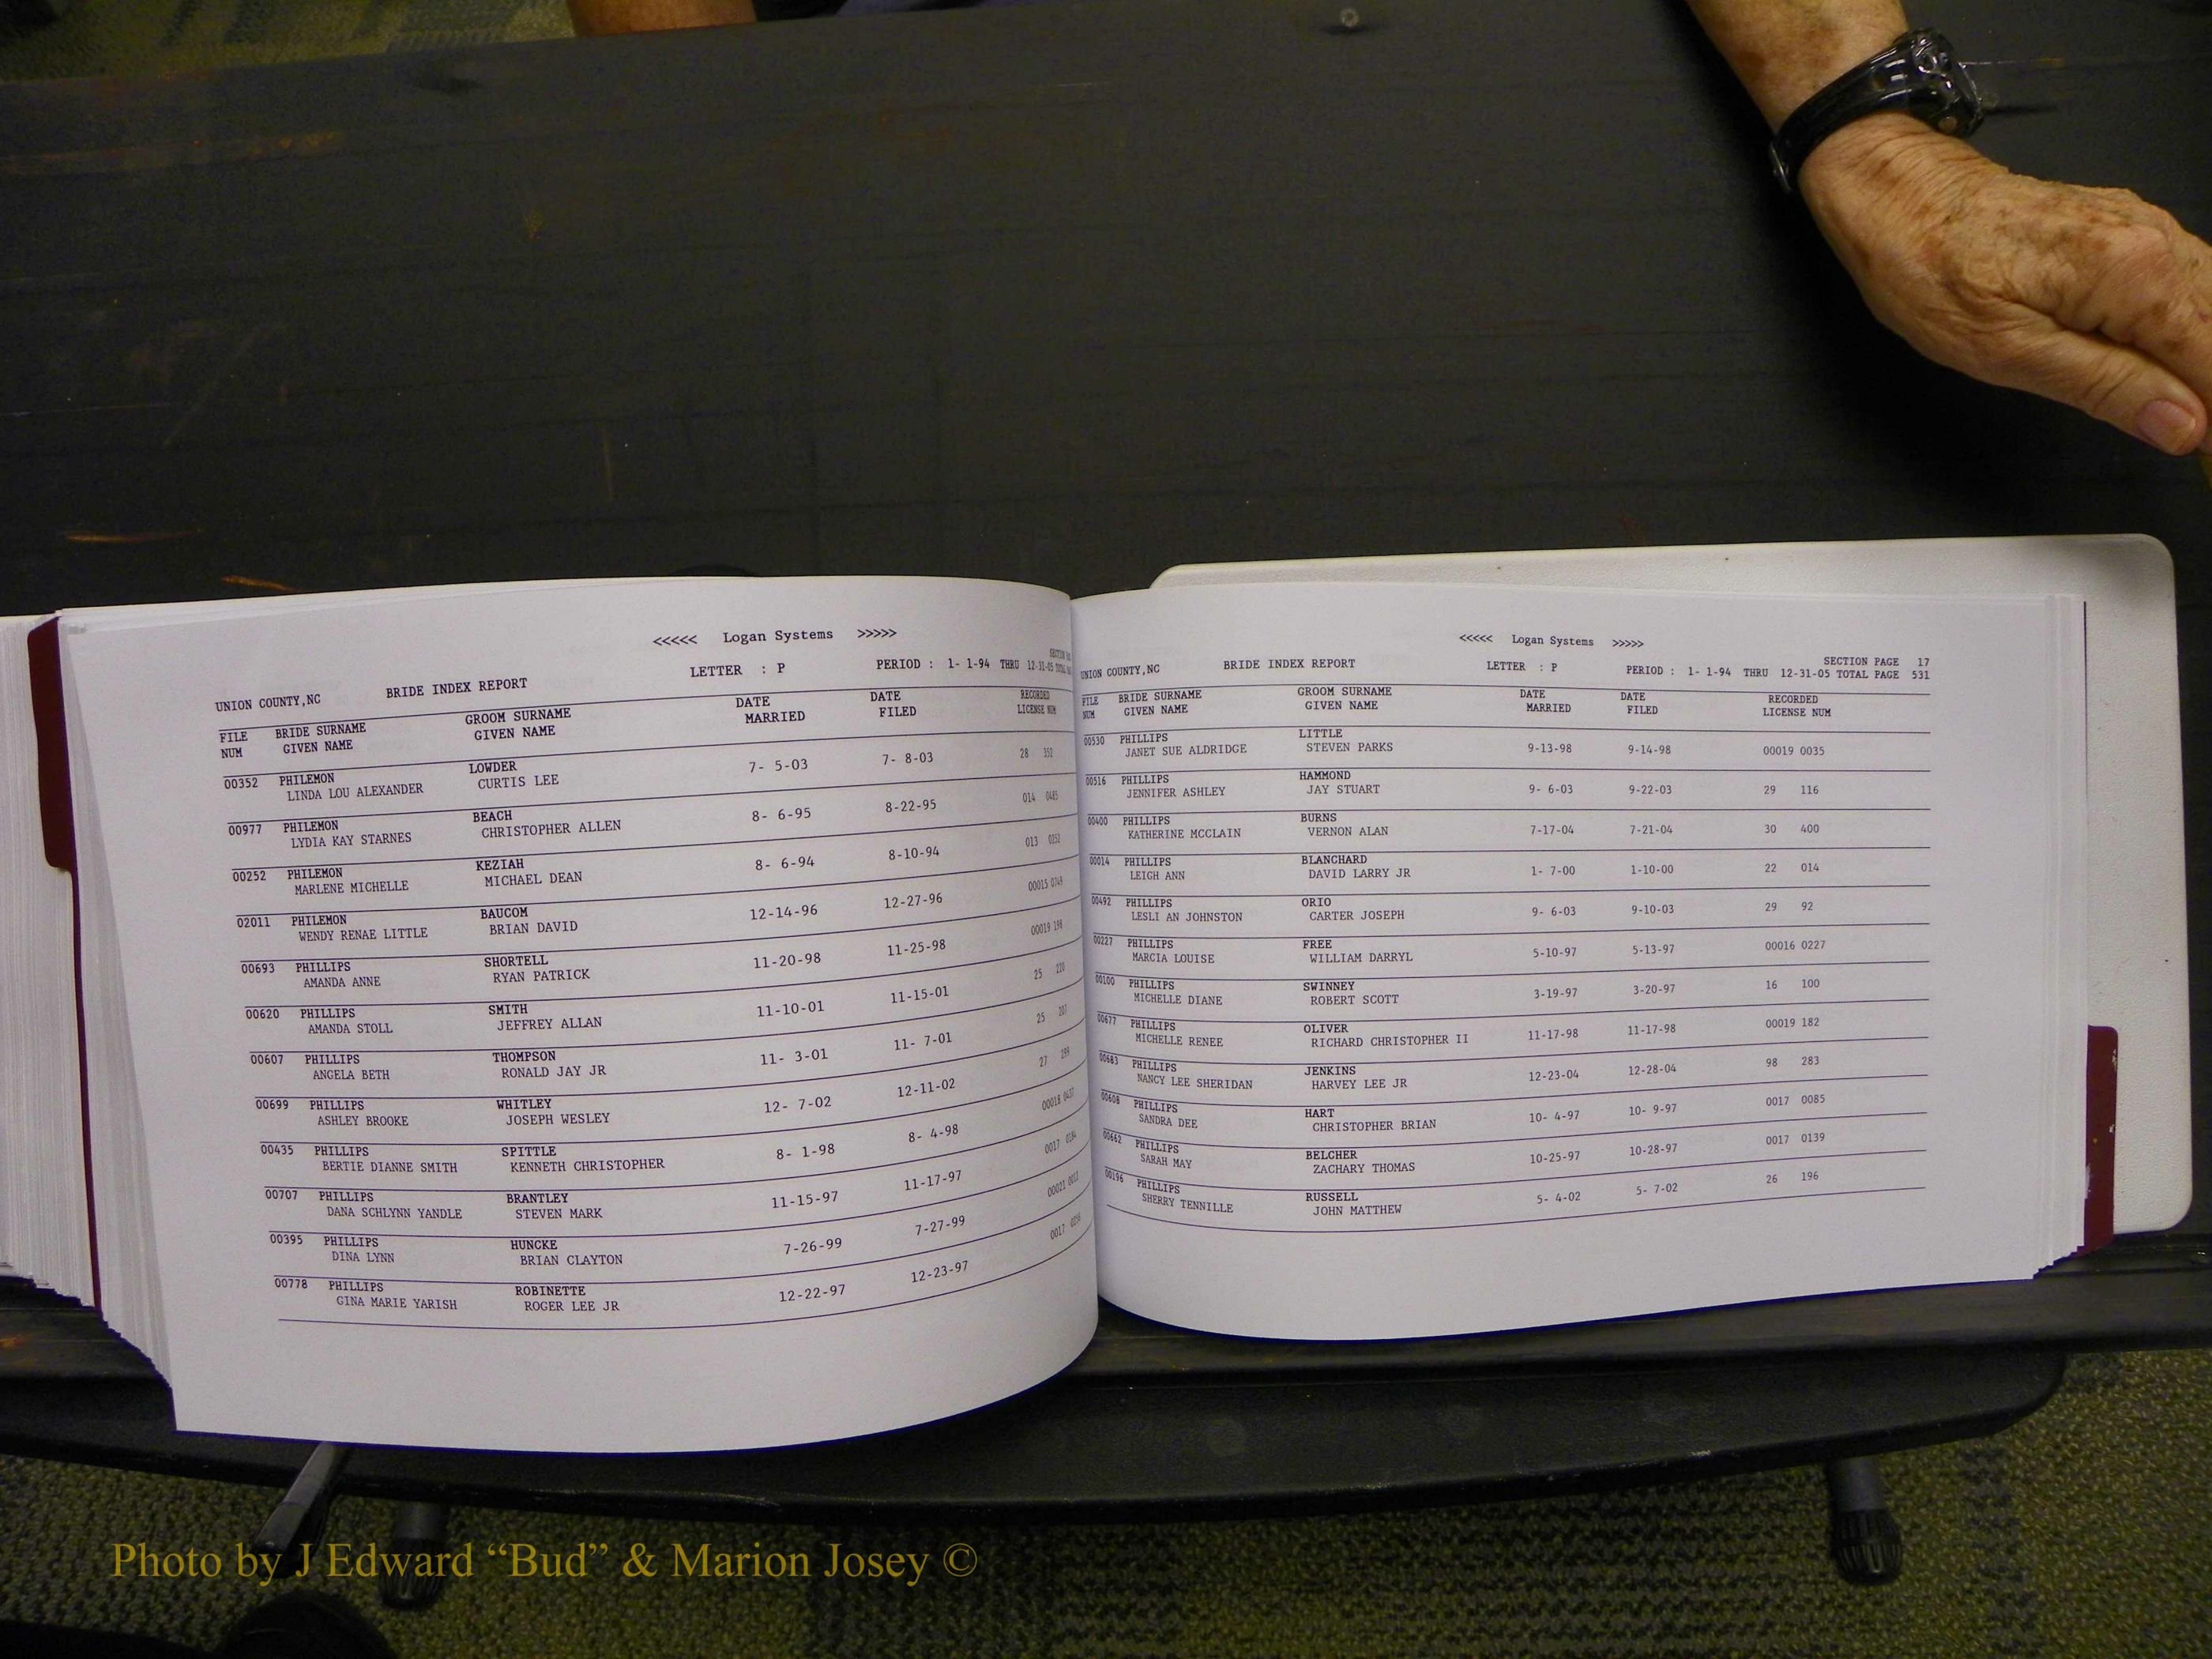 <<<<< Logan Systems >>>>>
UNION COUNTY,NC BRIDE INDEX REPORT LETTER : P PERIOD : 1- 1-94 THRU 12-31-05 TOTAL
FILE BRIDE SURNAME GROOM SURNAME DATE DATE RECORDED
NUM GIVEN NAME GIVEN NAME MARRIED FILED LICENSE NUM
00352 PHILEMON LOWDER 7- 5-03 7- 8-03 28 352
LINDA LOU ALEXANDER CURTIS LEE
00977 PHILEMON BEACH 8- 6-95 8-22-95 014 0485
LYDIA KAY STARNES CHRISTOPHER ALLEN
00252 PHILEMON KEZIAH 8- 6-94 8-10-94 013 0252
MARLENE MICHELLE MICHAEL DEAN
02011 PHILEMON BAUCOM 12-14-96 12-27-96 00015 0749
WENDY RENAE LITTLE BRIAN DAVID
00693 PHILLIPS SHORTELL 11-20-98 11-25-98 00019 198
AMANDA ANNE RYAN PATRICK
00620 PHILLIPS SMITH 11-10-01 11-15-01 25 220
AMANDA STOLL JEFFREY ALLAN
00607 PHILLIPS THOMPSON 11- 3-01 11- 7-01 25 207
ANGELA BETH RONALD JAY JR
00699 PHILLIPS WHITLEY 12- 7-02 12-11-02 27 299
ASHLEY BROOKE JOSEPH WESLEY
00435 PHILLIPS SPITTLE 8- 1-98 8- 4-98 00018 0437
BERTIE DIANNE SMITH KENNETH CHRISTOPHER
00707 PHILLIPS BRANTLEY 11-15-97 11-17-97 0017 0184
DANA SCHLYNN YANDLE STEVEN MARK
00395 PHILLIPS HUNCKE 7-26-99 7-27-99 00021
DINA LYNN BRIAN CLAYTON
00778 PHILLIPS ROBINETTE 12-22-97 12-23-97 0017
GINA MARIE YARISH ROGER LEE JR
<<<<< Logan Systems >>>>>
SECTION PAGE 17
UNION COUNTY,NC BRIDE INDEX REPORT LETTER : P PERIOD : 1- 1-94 THRU 12-31-05 TOTAL PAGE 531
FILE BRIDE SURNAME GROOM SURNAME DATE DATE RECORDED
NUM GIVEN NAME GIVEN NAME MARRIED FILED LICENSE NUM
00530 PHILLIPS LITTLE 9-13-98 9-14-98 00019 0035
JANET SUE ALDRIDGE STEVEN PARKS
00516 PHILLIPS HAMMOND 9- 6-03 9-22-03 29 116
JENNIFER ASHLEY JAY STUART
00400 PHILLIPS BURNS 7-17-04 7-21-04 30 400
KATHERINE MCCLAIN VERNON ALAN
00014 PHILLIPS BLANCHARD 1- 7-00 1-10-00 22 014
LEIGH ANN DAVID LARRY JR
00492 PHILLIPS ORIO 9- 6-03 9-10-03 29 92
LESLI AN JOHNSTON CARTER JOSEPH
00227 PHILLIPS FREE 5-10-97 5-13-97 00016 0227
MARCIA LOUISE WILLIAM DARRYL
00100 PHILLIPS SWINNEY 3-19-97 3-20-97 16 100
MICHELLE DIANE ROBERT SCOTT
00677 PHILLIPS OLIVER 11-17-98 11-17-98 00019 182
MICHELLE RENEE RICHARD CHRISTOPHER II
00683 PHILLIPS JENKINS 12-23-04 12-28-04 98 283
NANCY LEE SHERIDAN HARVEY LEE JR
00608 PHILLIPS HART 10- 4-97 10- 9-97 0017 0085
SANDRA DEE CHRISTOPHER BRIAN
00662 PHILLIPS BELCHER 10-25-97 10-28-97 0017 0139
SARAH MAY ZACHARY THOMAS
00196 PHILLIPS RUSSELL 5- 4-02 5- 7-02 26 196
SHERRY TENNILLE JOHN MATTHEW
Photo by J Edward “Bud” & Marion Josey ©